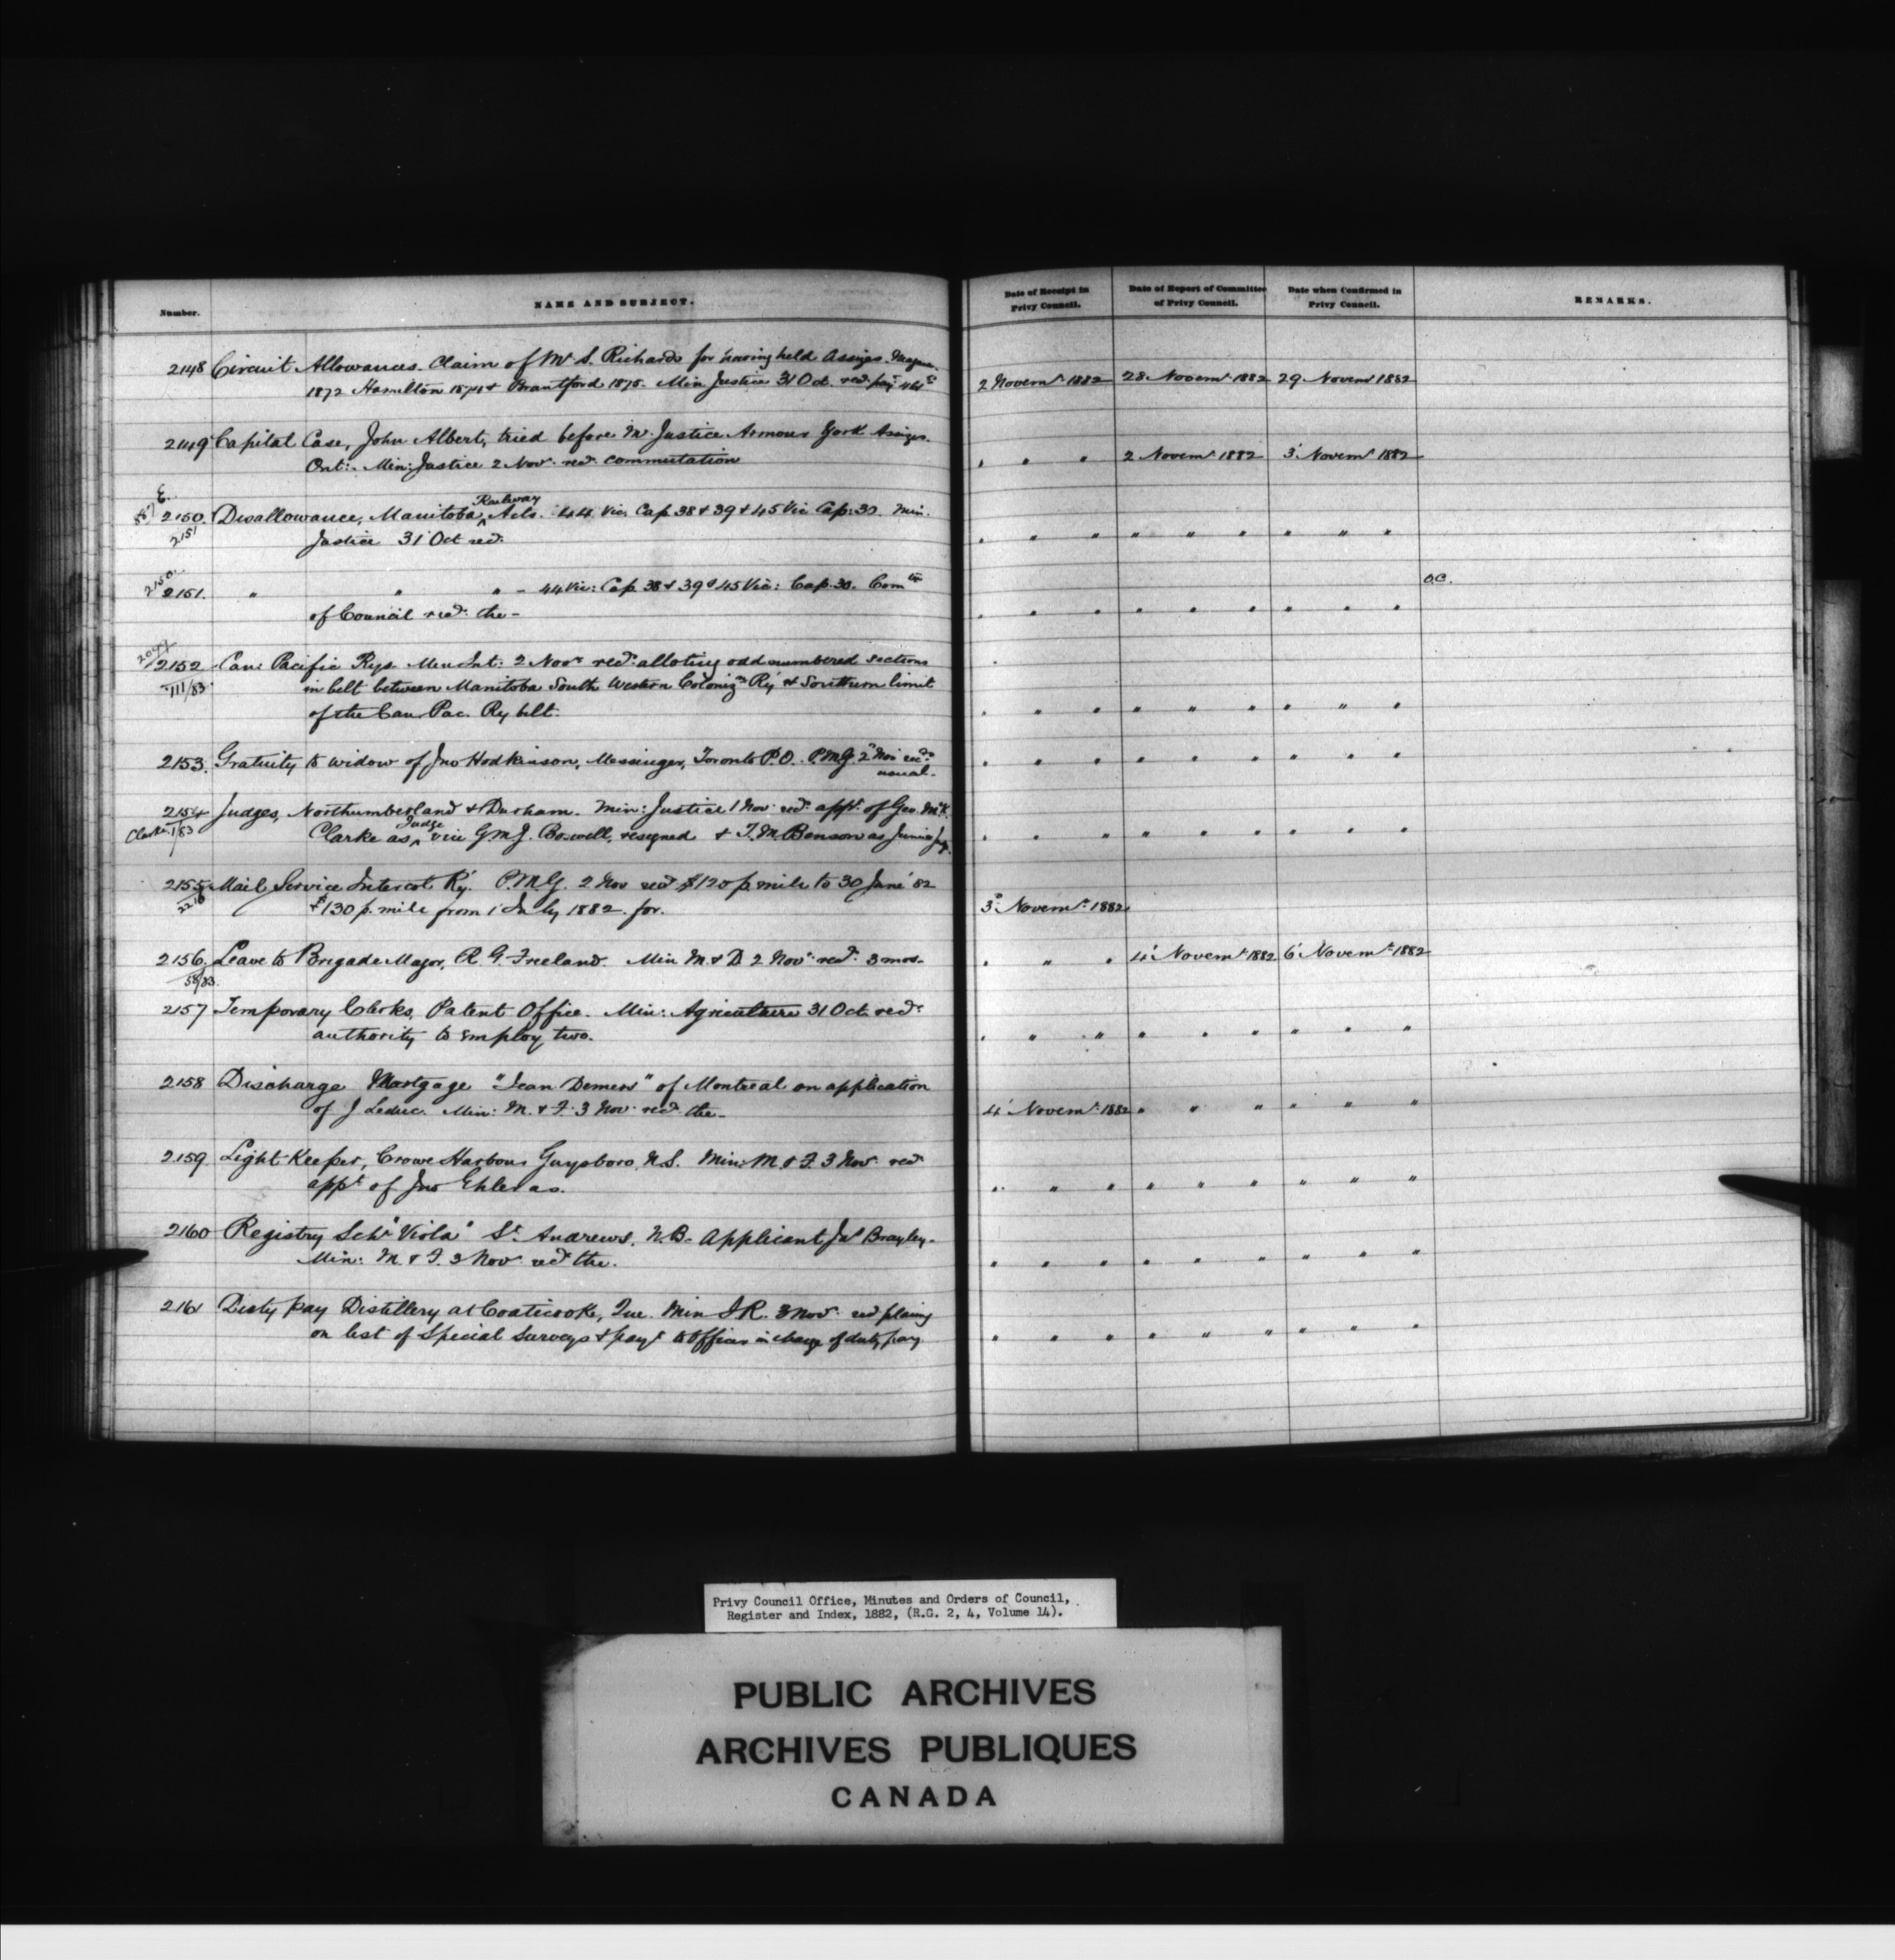 Number.
NAME AND SUBJECT.
Date of Receipt in Privy Council.
Date of Report of Committee of Privy Council.
Date when Confirmed in Privy Council.
REMARKS.
2148 Circuit Allowances. Claim of Mr. S. Richards for having held Assizes
1872 Hamilton 1874 & Brantford 1875. Min Justice 31 Oct. red. 2 Novemr. 1882 28 Novemr. 1882 29 Novemr 1882
2149 Capital Case, John Albert, tried before Mr. Justice Armour York Assizes.
Ont: Min: Justice 2 Nov. red. commutation " " " 2 Novemr 1882 3' Novemr 1882
E.
2150. Disallowance, Manitoba Railway Acts. 44 Vic. Cap 38 & 39 & 45 Vic Cap: 30. Min.
2151
Justice 31 Oct red. " " " " " " " " "
2150
2151. " " " - 44 Vic: Cap 38 & 39 & 45 Vic: Cap. 30. Comtee O.C.
of Council red. the - " " " " " " " " "
2152 Can: Pacific Rys. Min Int: 2 Novr. red. alloting odd numbered sections
111/83 in belt between Manitoba South Western Coloniz'n Ry & Southern limit
of the Can. Pac. Ry belt. " " " " " " " " "
2153. Gratuity to widow of Jno Hodkinson, Messenger, Toronto P.O. P.M.G. 2 Nov red. " " " " " " " " "
usual.
2154 Judges, Northumberland & Durham. Min: Justice 1 Nov. red. appt. of Geo. McK.
Clarke 1/83 Clarke as Judge vice G.M.J. Boswell, resigned & T. M. Benson as Junior " " " " " " " " "
2155 Mail Service Intercol. Ry. P.M.G. 2 Nov red $120 p mile to 30 June '82
& $130 p. mile from 1 July 1882. for. 3 Novemr. 1882
2156. Leave to Brigade Major, R. G. Freland. Min M. & D. 2 Novr. red. 3 mos. " " " 4' Novemr 1882 6' Novemr. 1882
58/83
2157 Temporary Clerks, Patent Office. Min: Agriculture 31 Oct. red.
authority to employ two. " " " " " " " " "
2158 Discharge Mortgage "Jean Demers" of Montreal on application
of J Leduc. Min: M. & F. 3 Nov. red. the - 4' Novemr. 1882 " " " " " "
2159 Light Keeper, Crowe Harbour Guysboro, N.S. Min: M. & F. 3 Nov. red
appt. of Jno Ehler as. " " " " " " " " "
2160 Registry Schr "Viola" St. Andrews, N.B. Applicant Js Brayley.
Min: M. & F. 3 Nov. red the. " " " " " " " " "
2161 Duty pay Distillery at Coaticooke, Que. Min I.R. 3 Nov. red placing
on list of Special Surveys & payt to Officer in charge of duty pay. " " " " " " " " "
Privy Council Office, Minutes and Orders of Council,
Register and Index, 1882, (R.G. 2, 4, Volume 14).
PUBLIC ARCHIVES
ARCHIVES PUBLIQUES
CANADA